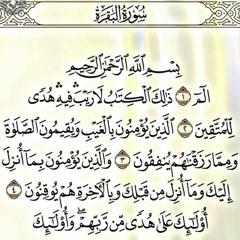 سُورَةُ البَقَرَةِ
بِسْمِ اللَّهِ الرَّحْمَٰنِ الرَّحِيمِ
الٓمٓ ۝١ ذَٰلِكَ الْكِتَابُ لَا رَيْبَ ۛ فِيهِ ۛ هُدًى
لِّلْمُتَّقِينَ ۝٢ الَّذِينَ يُؤْمِنُونَ بِالْغَيْبِ وَيُقِيمُونَ الصَّلَاةَ
وَمِمَّا رَزَقْنَاهُمْ يُنفِقُونَ ۝٣ وَالَّذِينَ يُؤْمِنُونَ بِمَا أُنزِلَ
إِلَيْكَ وَمَا أُنزِلَ مِن قَبْلِكَ وَبِالْآخِرَةِ هُمْ يُوقِنُونَ ۝٤
أُولَٰئِكَ عَلَىٰ هُدًى مِّن رَّبِّهِمْ ۖ وَأُولَٰئِكَ